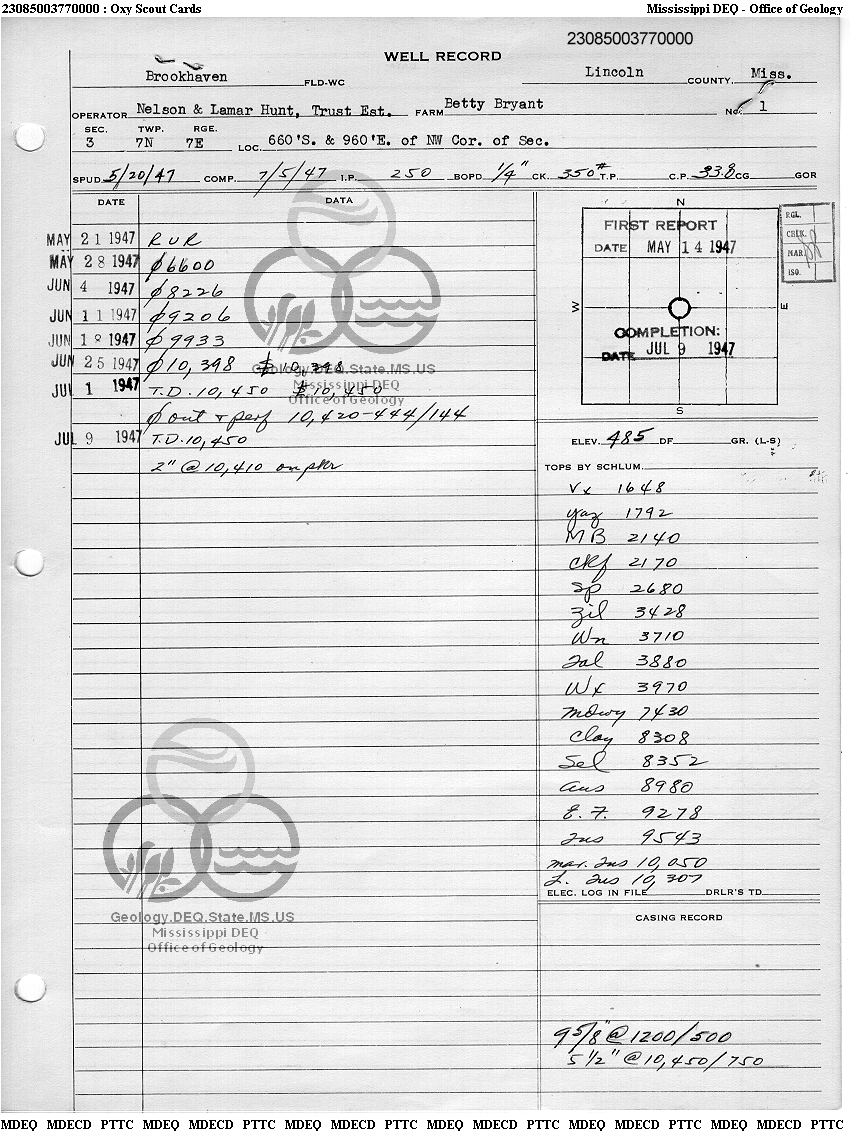 23085003770000 : Oxy Scout Cards Mississippi DEQ - Office of Geology
23085003770000
WELL RECORD
Brookhaven FLD-WC Lincoln COUNTY, Miss.
OPERATOR Nelson & Lamar Hunt, Trust Est. FARM Betty Bryant No. 1
SEC. TWP. RGE.
3 7N 7E LOC. 660'S. & 960'E. of NW Cor. of Sec.
SPUD 5/20/47 COMP. 7/5/47 I.P. 250 BOPD 1/4" CK. 350# T.P. C.P. 33.8 CG GOR
DATE DATA
MAY 21 1947 RUR
MAY 28 1947 ϕ6600
JUN 4 1947 ϕ8226
JUN 11 1947 ϕ9206
JUN 18 1947 ϕ9933
JUN 25 1947 ϕ10,398 10,398
JUL 1 1947 T.D. 10,450 10,450
ϕ out & perf 10,420-444/144
JUL 9 1947 T.D. 10,450
2" @ 10,410 on pkr
Geology.DEQ.State.MS.US
Mississippi DEQ
Office of Geology
N
FIRST REPORT
DATE MAY 14 1947
W E
COMPLETION:
DATE JUL 9 1947
S
RGL.
CHLK.
MAR.
ISO.
ELEV. 485 DF GR. (L-S)
TOPS BY SCHLUM.
Vx 1648
Yaz 1792
MB 2140
Ckf 2170
Sp 2680
Zil 3428
Wn 3710
Tal 3880
Wx 3970
Mdwy 7430
Clay 8308
Sel 8352
Aus 8980
E.F. 9278
Tus 9543
Mar. Tus 10,050
L. Tus 10,307
ELEC. LOG IN FILE DRLR'S TD
CASING RECORD
9 5/8" @ 1200/500
5 1/2" @ 10,450/750
Geology.DEQ.State.MS.US
Mississippi DEQ
Office of Geology
MDEQ MDECD PTTC MDEQ MDECD PTTC MDEQ MDECD PTTC MDEQ MDECD PTTC MDEQ MDECD PTTC MDEQ MDECD PTTC